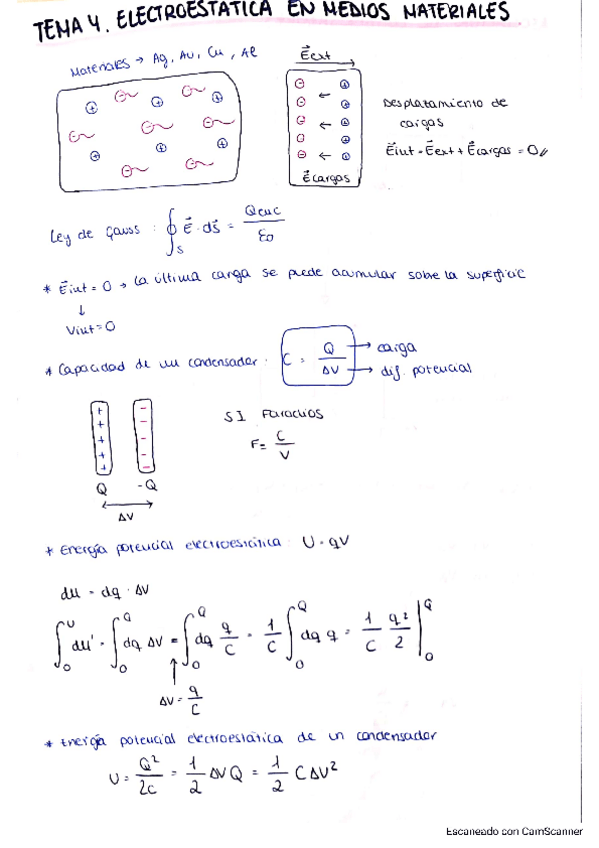 TEMA 4. ELECTROESTÁTICA EN MEDIOS MATERIALES
Materiales → Ag, Au, Cu, Al
E⃗ext
Desplazamiento de
cargas
E⃗int = E⃗ext + E⃗cargas = 0
E⃗cargas
Ley de Gauss : ∮_S E⃗ · dS⃗ = Qenc / ε0
* E⃗int = 0 → La última carga se puede acumular sobre la superficie
↓
Vint = 0
* Capacidad de un condensador : C = Q / ΔV → carga → dif. potencial
SI Faradios
F = C / V
Q -Q
ΔV
* Energía potencial electroestática U = qV
du = dq · ΔV
∫_0^U du' = ∫_0^Q dq ΔV = ∫_0^Q dq q/C = 1/C ∫_0^Q dq q = 1/C q²/2 |_0^Q
ΔV = q/C
* Energía potencial electroestática de un condensador
U = Q²/2C = 1/2 ΔV Q = 1/2 C ΔV²
Escaneado con CamScanner